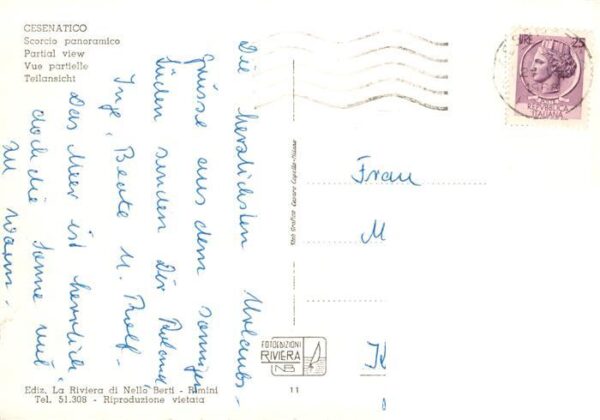 CESENATICO
Scorcio panoramico
Partial view
Vue partielle
Teilansicht
LIRE 25
REPUBBLICA
ITALIANA
Die herzlichsten Urlaubs-
grüsse aus dem sonnigen
Süden senden Dir Roland,
Inge, Beate u. Rolf.
Das Meer ist herrlich
doch die Sonne zu
warm.
Frau
M
K
FOTOEDIZIONI
RIVIERA
NB
11
Ediz. La Riviera di Nello Berti - Rimini
Tel. 51.308 - Riproduzione vietata